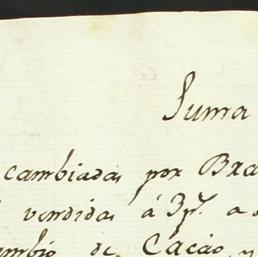 Suma
cambiadas por Bra
vendidas á 3 p.s a
ambio de Cacao, y